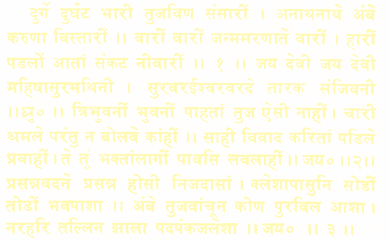 दुर्गे दुर्घट भारी तुजविण संसारीं । अनाथनाथे अंबे
करुणा विस्तारीं ।। वारीं वारीं जन्ममरणाते वारीं । हारीं
पडलों आतां संकट नीवारीं ।। १ ।। जय देवी जय देवी
महिषासुरमथिनी । सुरवरईश्वरवरदे तारक संजिवनी
।।ध्रु० ।। त्रिभुवनीं भुवनीं पाहतां तुज ऐसी नाहीं । चारी
श्रमले परंतु न बोलवे कांहीं ।। साही विवाद करितां पडिले
प्रवाहीं । ते तूं भक्तांलागीं पावसि लवलाहीं ।। जय० ।।२।।
प्रसन्नवदने प्रसन्न होसी निजदासां । क्लेशापासुनि सोडीं
तोडीं भवपाशा ।। अंबे तुजवांचून कोण पुरविल आशा ।
नरहरि तल्लिन झाला पदपंकजलेशा ।। जय० ।। ३ ।।